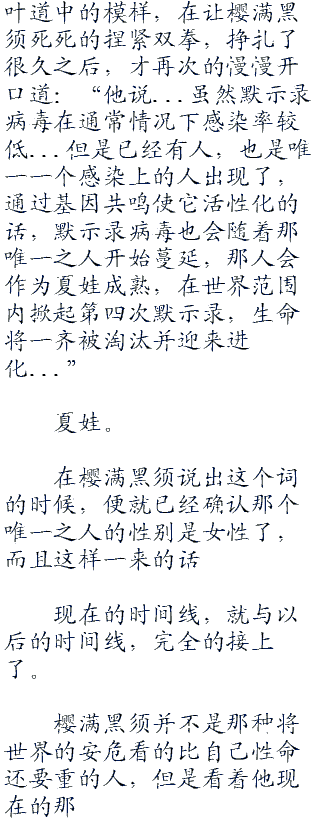 叶道中的模样，在让樱满黑
须死死的捏紧双拳，挣扎了
很久之后，才再次的慢慢开
口道：“他说...虽然默示录
病毒在通常情况下感染率较
低...但是已经有人，也是唯
一一个感染上的人出现了，
通过基因共鸣使它活性化的
话，默示录病毒也会随着那
唯一之人开始蔓延，那人会
作为夏娃成熟，在世界范围
内掀起第四次默示录，生命
将一齐被淘汰并迎来进
化...”
夏娃。
在樱满黑须说出这个词
的时候，便就已经确认那个
唯一之人的性别是女性了，
而且这样一来的话
现在的时间线，就与以
后的时间线，完全的接上
了。
樱满黑须并不是那种将
世界的安危看的比自己性命
还要重的人，但是看着他现
在的那